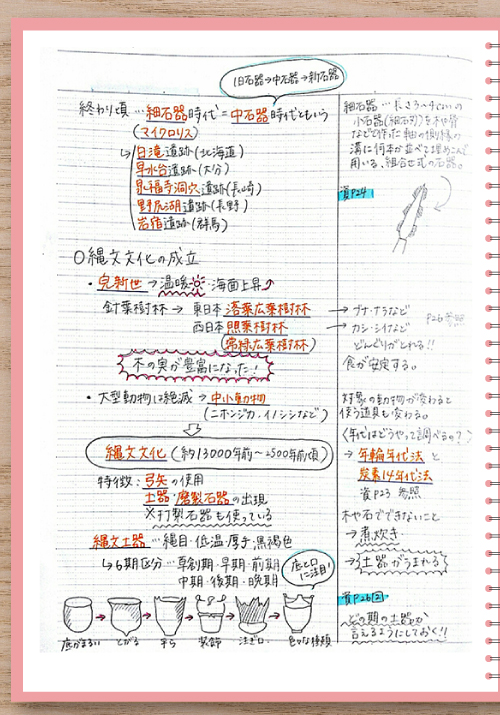 旧石器→中石器→新石器
終わり頃…細石器時代=中石器時代ともいう
(マイクロリス)
白滝遺跡(北海道)
早水台遺跡(大分)
泉福寺洞穴遺跡(長崎)
野尻湖遺跡(長野)
岩宿遺跡(群馬)
〇縄文文化の成立
・完新世→温暖 海面上昇
針葉樹林→東日本 落葉広葉樹林
西日本 照葉樹林
(常緑広葉樹林)
木の実が豊富になった!
・大型動物は絶滅→中小動物
(ニホンジカ・イノシシなど)
縄文文化(約13000年前〜2500年前頃)
特徴:弓矢の使用
土器・磨製石器の出現
※打製石器も使っている
縄文土器…縄目・低温・厚手・黒褐色
↳6期区分…草創期・早期・前期
中期・後期・晩期
底と口に注目!
底がまるい とがる 平ら 装飾 注ぎ口 色々な種類
細石器…長さ3〜4cmの
小石器(細石刃)を木や骨
などで作った軸の側縁の
溝に何本か並べて埋めこんで
用いる、組合せ式の石器。
資P24
→ブナ・ナラなど
→カシ・シイなど
P26参照
どんぐりがとれる!!
食が安定する。
対象の動物が変わると
使う道具も変わる。
〈年代はどうやって調べるの?〉
→年輪年代法と
炭素14年代法
資P23 参照
木や石でできないこと
→煮炊き
→土器がうまれる
資P26
どの期の土器か
言えるようにしておく!!